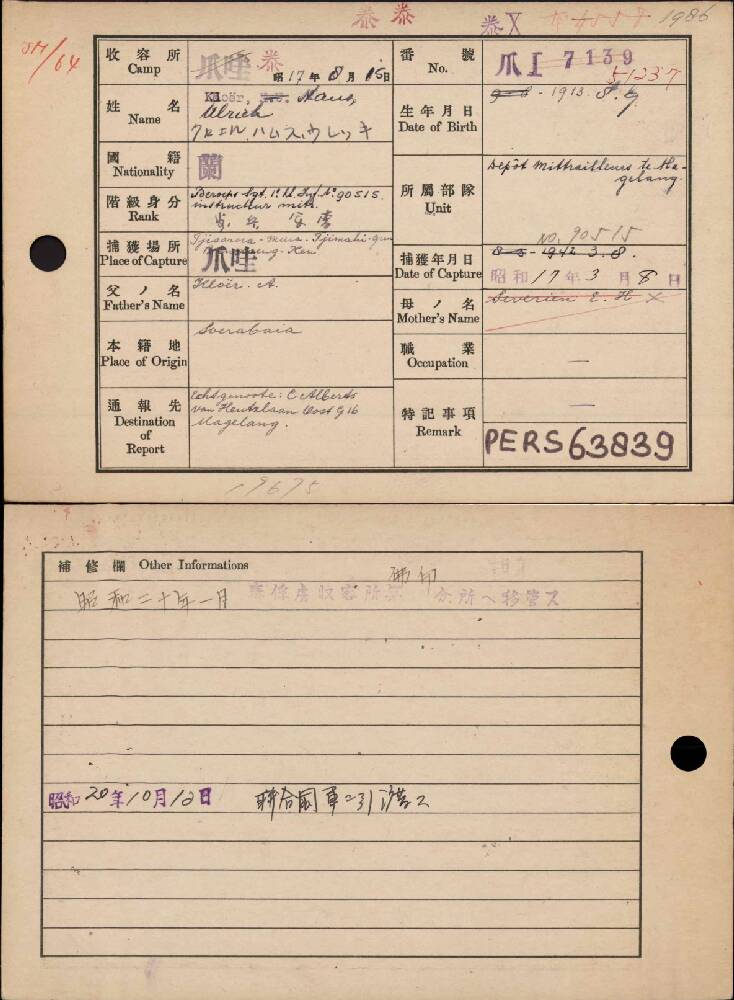 泰 泰 泰X 1986
収容所 Camp 爪哇 泰 昭17年8月15日
番號 No. 爪I 7139
51237
姓名 Name Kloër, Hans,
Ulrich
生年月日 Date of Birth 1913. 8.
國籍 Nationality 蘭
階級身分 Rank Beroeps Sgt. Inf. No. 90515.
instructeur mitr.
所屬部隊 Unit Depôt Mittrailleurs te Ma-
gelang.
No. 90515
捕獲場所 Place of Capture 爪哇
捕獲年月日 Date of Capture 8-5-1942 3.8.
昭和17年3月8日
父ノ名 Father's Name Kloër. A.
母ノ名 Mother's Name Severien E. H X
本籍地 Place of Origin Soerabaia
職業 Occupation —
通報先 Destination of Report Echtgenoote: E Alberts
van Heutszlaan Oost G 16
Magelang.
特記事項 Remark —
PERS 63839
19675
補修欄 Other Informations
佛印
昭和二十年一月 泰俘虜収容所第 分所ヘ移管ス
昭和20年10月12日 聯合国軍ニ引渡ス